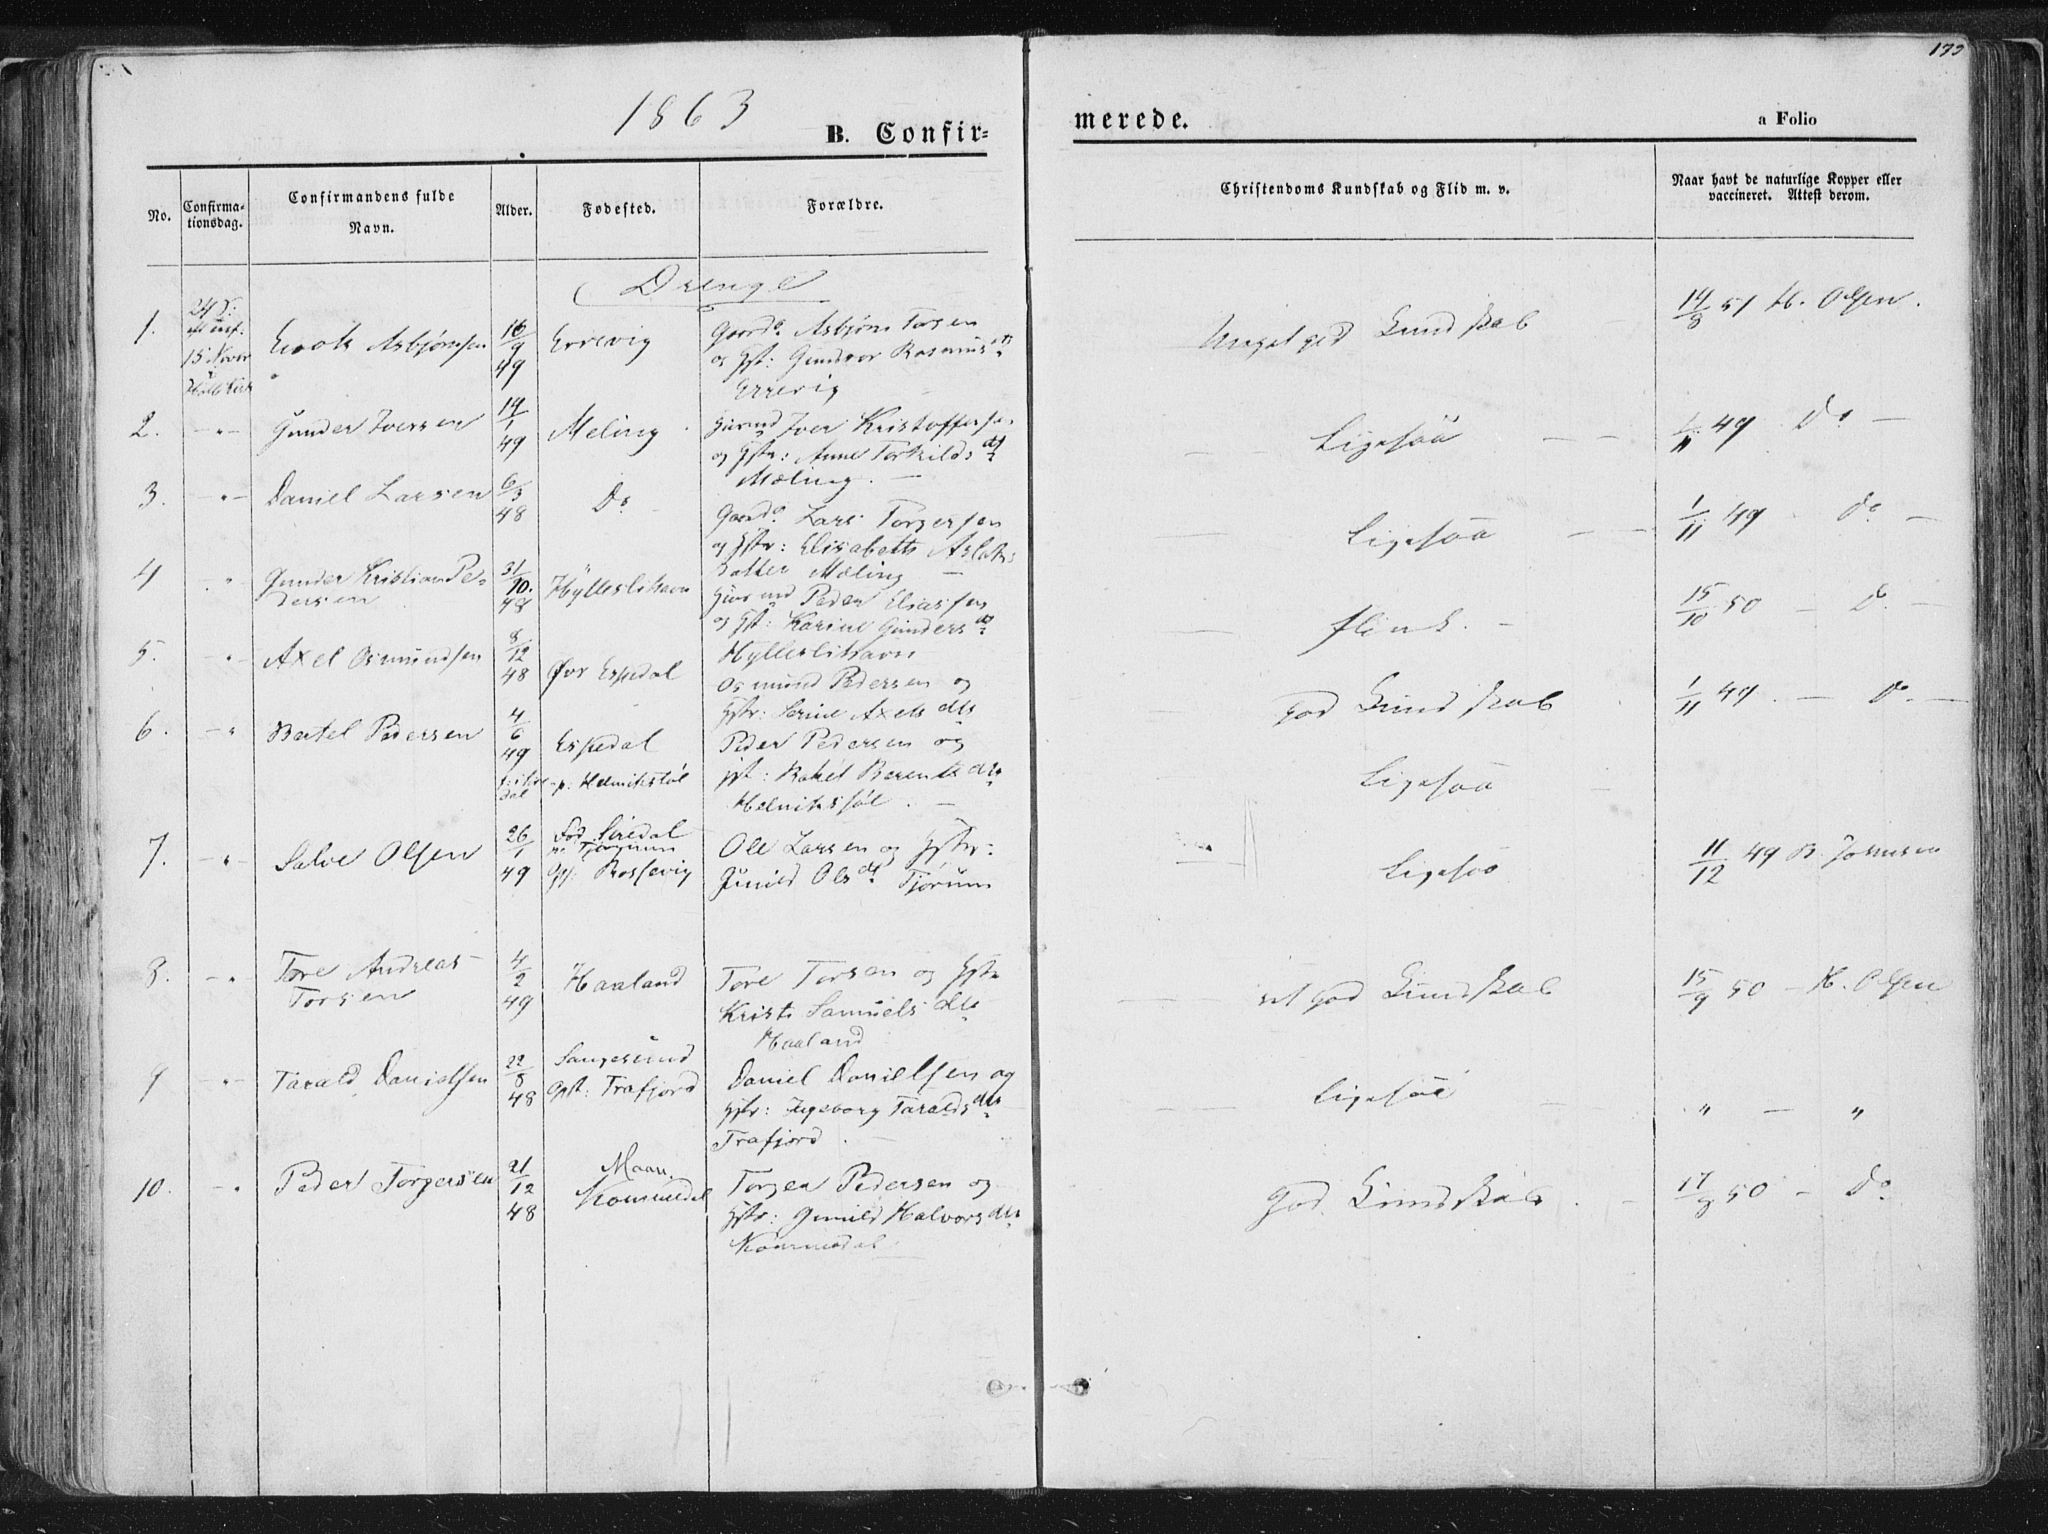 173
1863
B. Confir-
merede.
a Folio
No.
Confirma-
tionsdag.
Confirmandens fulde
Navn.
Alder.
Fødested.
Forældre.
Christendoms Kundskab og Flid m. v.
Naar havt de naturlige Kopper eller
vaccineret. Attest derom.
Drenge
1. Enok Asbjørnsen 16/9 49 Errevig
Gaard. Asbjørn Torsen
og Hst: Gundvor Rasmusd.
Errevig
Meget god Kundskab
14/8 51 H. Olsen.
15 Novbr
2. -"- Gunder Iversen 14/1 49 Meling
Iver Kristoffersen
og Hstr: Anne Torkildsdt
Mæling.
Ligesaa
11 49 Do
3. -"- Daniel Larsen 6/3 48 Do
Gaard. Lars Torgersen
og Hstr: Elisabeth Aslaks
datter Mæling
Ligesaa
1/11 49 Do
4 -"- Gunder Kristian Pe-
dersen 31/10. 48 Hylleslihavn
Peder Eliassen
og Hst: Karine Gundersdt
Hylleslihavn
flink.
15/10 50 Do
5. -"- Axel Osmundsen 8/12 48 Øvr Espedal
Osmund Pedersen og
Hstr: Serine Axelsdtr
god Kundskab
1/11 49. Do
6. -"- Bertel Pedersen 4/6 49 Espedal
p: Helmikstøl
Peder Pedersen og
Hst: Rakel Berentsdtr
Helmikstøl.
Ligesaa
7. -"- Salve Olsen 26/1 49
Fød Siredal
Tjørum
Ops: Rossevig
Ole Larsen og Hstr:
Gunild Olsdt Tjørum
Ligesaa
11/12 49
8. -"- Tore Andreas
Torsen 4/2 49 Haaland
Tore Torsen og Hstr
Kristi Samuelsdtr
Haaland
ret god Kundskab
15/9 50 H. Olsen
9 -"- Tarald Danielsen 22/8 48
Langesund
Opst: Trafjord
Daniel Danielsen og
Hstr: Ingeborg Taraldsdtr
Trafjord.
Ligesaa
" — "
10. -"- Peder Torgersen 21/12 48
Maan
Kommedal
Torger Pedersen og
Hstr: Gunild Halvorsdtr
Kommedal
God Kundskab.
17/8 50 Do